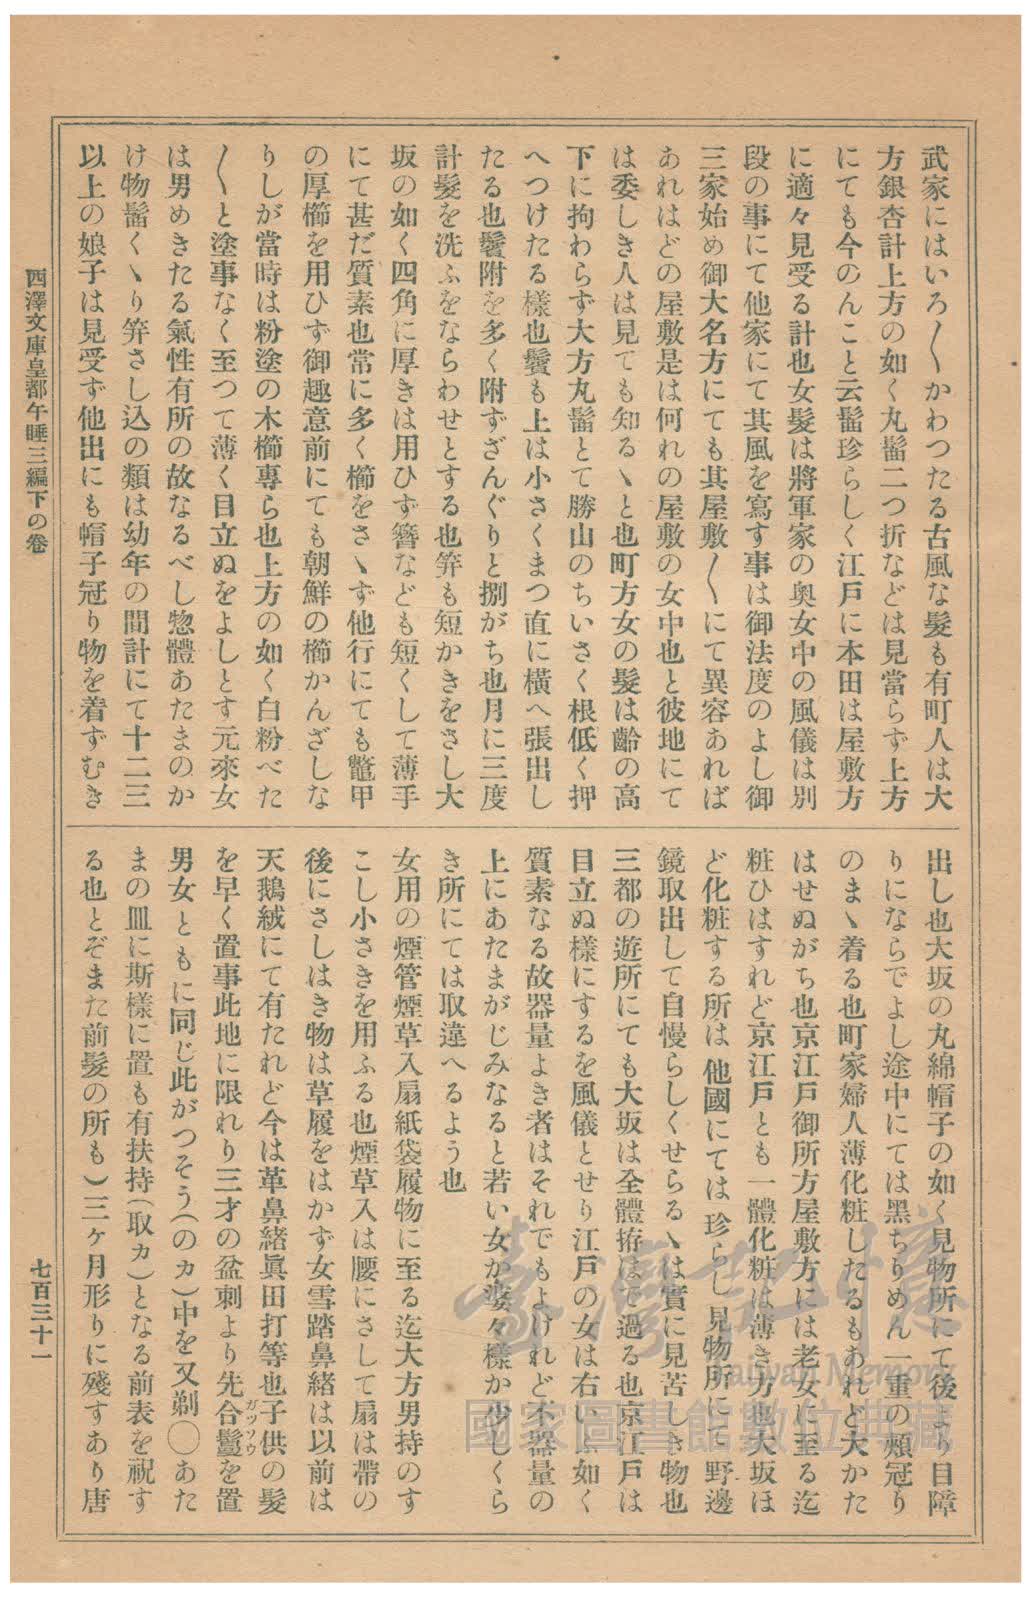 武家にはいろ〳〵かわつたる古風な髪も有町人は大
方銀杏計上方の如く丸髷二つ折などは見當らず上方
にても今のんこと云髷珍らしく江戸に本田は屋敷方
に適々見受る計也女髮は將軍家の奧女中の風儀は別
段の事にて他家にて其風を寫す事は御法度のよし御
三家始め御大名方にても其屋敷〳〵にて異容あれば
あれはどの屋敷是は何れの屋敷の女中也と彼地にて
は委しき人は見ても知るゝと也町方女の髮は齡の高
下に拘わらず大方丸髷とて勝山のちいさく根低く押
へつけたる樣也鬢も上は小さくまつ直に横へ張出し
たる也鬢附を多く附ずざんぐりと捌がち也月に三度
計髮を洗ふをならわせとする也笄も短かきをさし大
坂の如く四角に厚きは用ひず簪なども短くして薄手
にて甚だ質素也常に多く櫛をさゝず他行にても鼈甲
の厚櫛を用ひず御趣意前にても朝鮮の櫛かんざしな
りしが當時は粉塗の木櫛專ら也上方の如く白粉べた
〳〵と塗事なく至つて薄く目立ぬをよしとす元來女
は男めきたる氣性有所の故なるべし惣體あたまのか
け物髷くゝり笄さし込の類は幼年の間計にて十二三
以上の娘子は見受ず他出にも帽子冠り物を着ずむき
出し也大坂の丸綿帽子の如く見物所にて後より目障
りにならでよし途中にては黑ちりめん一重の頰冠り
のまゝ着る也町家婦人薄化粧したるもあれど大かた
はせぬがち也京江戸御所方屋敷方には老女に至る迄
粧ひはすれど京江戸とも一體化粧は薄き方也大坂ほ
ど化粧する所は他國にては珍らし見物所にて野邊
鏡取出して自慢らしくせらるゝは實に見苦しき物也
三都の遊所にても大坂は全體拵はで過る也京江戸は
目立ぬ樣にするを風儀とせり江戸の女は右いふ如く
質素なる故器量よき者はそれでもよけれど不器量の
上にあたまがじみなると若い女か婆々樣か少しくら
き所にては取違へるよう也
女用の煙管煙草入扇紙袋履物に至る迄大方男持のす
こし小さきを用ふる也煙草入は腰にさして扇は帶の
後にさしはき物は草履をはかず女雪踏鼻緒は以前は
天鵝絨にて有たれど今は革鼻緒眞田打等也子供の髮
を早く置事此地に限れり三才の盆刺より先合鬘ガツソウを置
男女ともに同じ此がつそう(のカ)中を又剃〇あた
まの皿に斯樣に置も有扶持(取カ)となる前表を祝す
る也とぞまた前髮の所も)三ヶ月形りに殘すあり唐
西澤文庫皇都午睡三編下の卷
七百三十一
臺灣記憶
Taiwan Memory
國家圖書館數位典藏